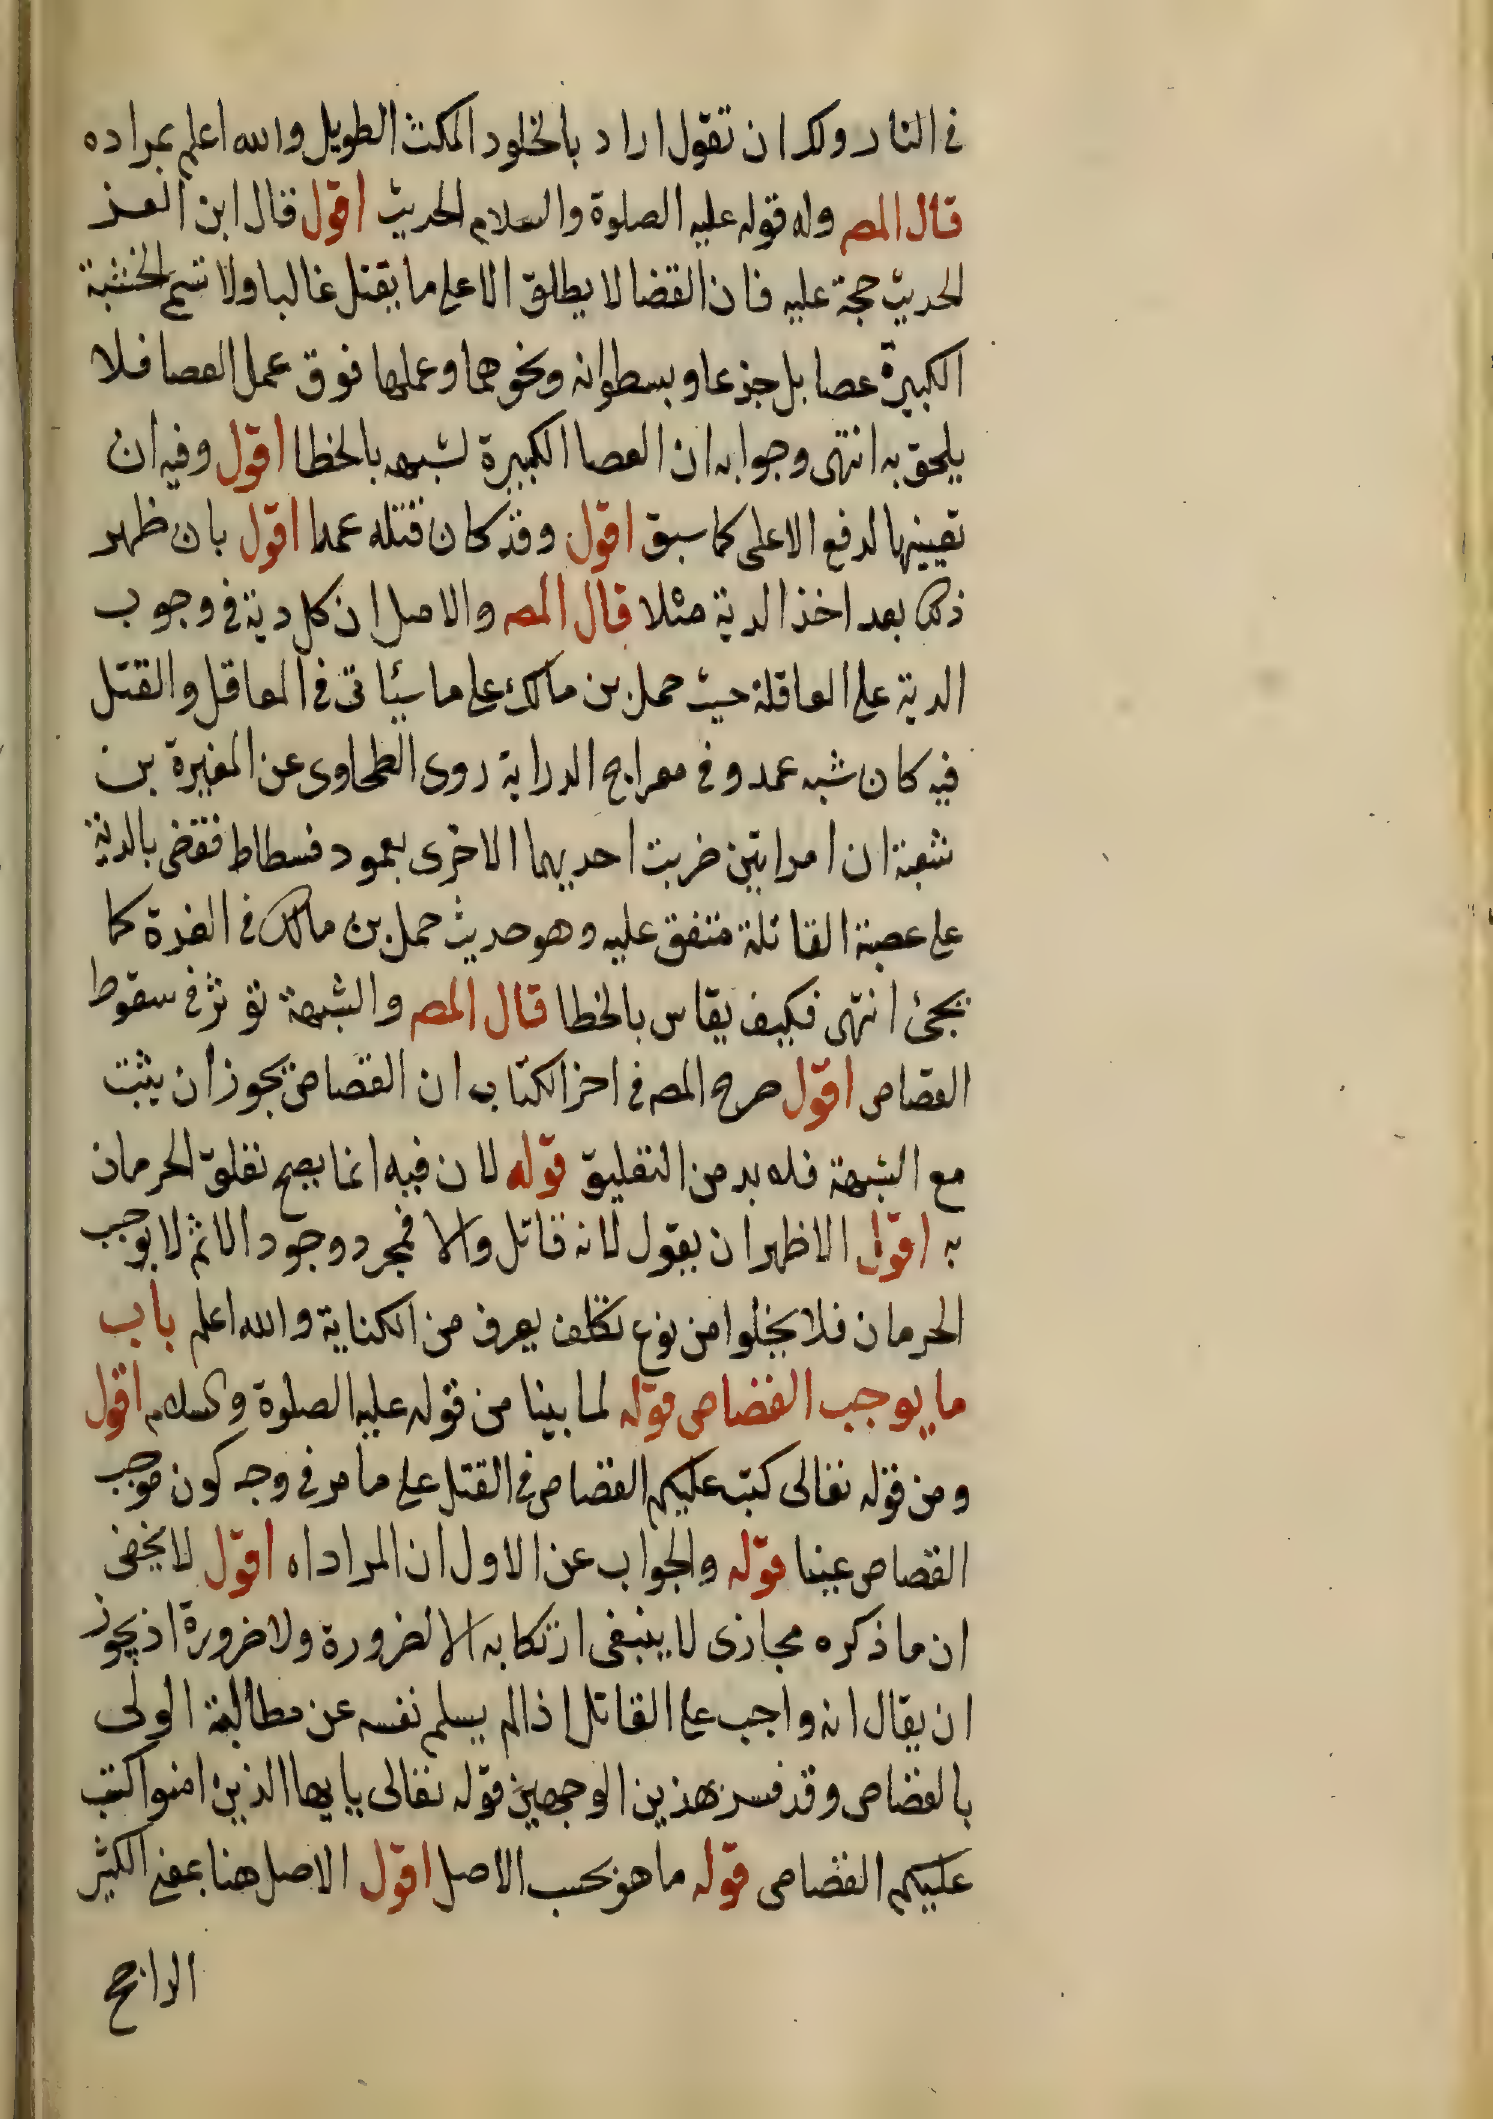 في النار ولك ان تقول اراد بالخلود المكث الطويل والله اعلم بمراده
قال المص وله قوله عليه الصلوة والسلام الحديث اقول قال ابن العز
الحديث حجة عليه فان القضا لا يطلق الا على ما يقتل غالبا ولا تسم الخشبة
الكبيرة عصا بل جذعا وبسطوانه ونحوهما وعملها فوق عمل العصا فلا
يلحق به انتهى وجوابه ان العصا الكبيرة لشبهه بالخطا اقول وفيه ان
تعيينها لدفع الاعلى كما سبق اقول وقد كان قتله عمدا اقول بان ظهر
ذلك بعد اخذ الدية مثلا قال المص والاصل ان كل دية في وجوب
الدية على العاقلة حيث حمل بن مالك على ما سيئاتى في المعاقل والقتل
فيه كان شبه عمد وفى معراج الدراية روى الطحاوى عن المغيرة بن
شعبة ان امراتين ضربت احديهما الاخرى بعمود فسطاط فقضى بالدية
على عصبة القاتلة متفق عليه وهو حديث حمل بن مالك في الغرة كما
يجئ انتهى فكيف يقاس بالخطا قال المص والشبهة تؤثر في سقوط
القصاص اقول صرح المص في اخر الكتاب ان القصاص يجوز ان يثبت
مع الشبهة فله بد من التقليق قوله لان فيه انما يصح تعلق الحرمان
به اقول الاظهر ان يقول لانه قاتل والا فمجرد وجود الاثم لا يوجب
الحرمان فلا يخلوا من نوع تكلف يعرف من الكناية والله اعلم باب
ما يوجب القصاص قوله لما بينا من قوله عليه الصلوة والسلام اقول
ومن قوله تعالى كتب عليكم القصاص في القتل على ما مر في وجه كون موجب
القصاص عينا قوله والجواب عن الاول ان المراد اه اقول لا يخفى
ان ما ذكره مجازى لا ينبغى ارتكابه الا لضرورة ولا ضرورة اذ يجوز
ان يقال انه واجب على القاتل اذا لم يسلم نفسه عن مطالبة الولى
بالقصاص وقد فسر بهذين الوجهين قوله تعالى يايها الذين امنوا كتب
عليكم القصاص قوله ما هو بحسب الاصل اقول الاصل هنا بمعنى الكثير
الراجح